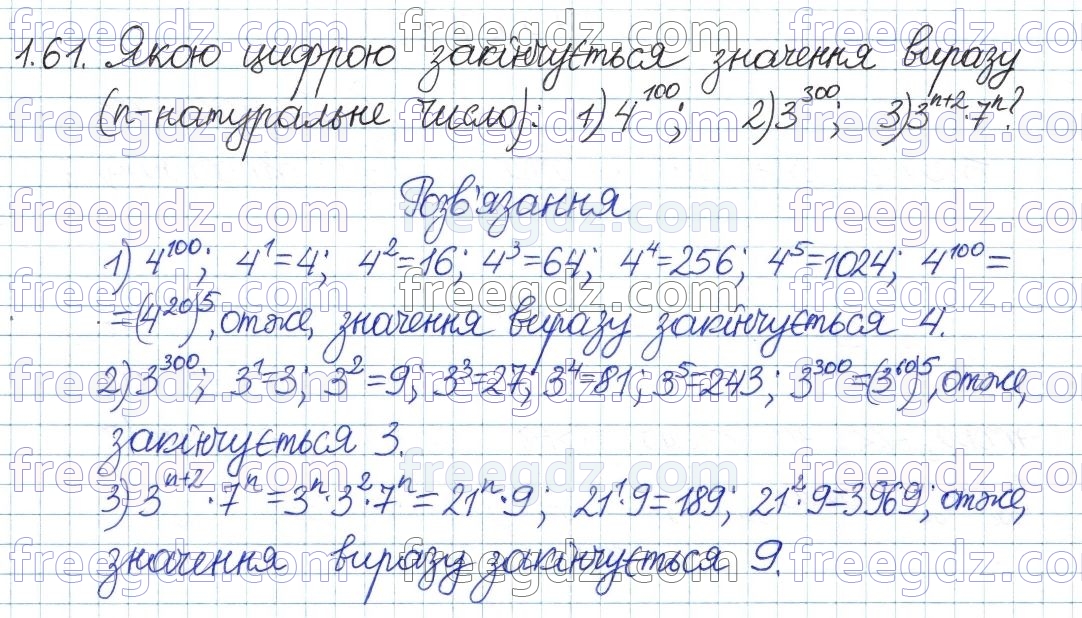 1.61. Якою цифрою закінчується значення виразу
(n-натуральне число): 1) 4^100; 2) 3^300; 3) 3^(n+2)·7^n?
Розв'язання
1) 4^100; 4^1=4; 4^2=16; 4^3=64; 4^4=256; 4^5=1024; 4^100=
=(4^20)^5, отже, значення виразу закінчується 4.
2) 3^300; 3^1=3; 3^2=9; 3^3=27; 3^4=81; 3^5=243; 3^300=(3^60)^5, отже,
закінчується 3.
3) 3^(n+2)·7^n=3^n·3^2·7^n=21^n·9; 21^1·9=189; 21^2·9=3969; отже,
значення виразу закінчується 9.
freegdz.com